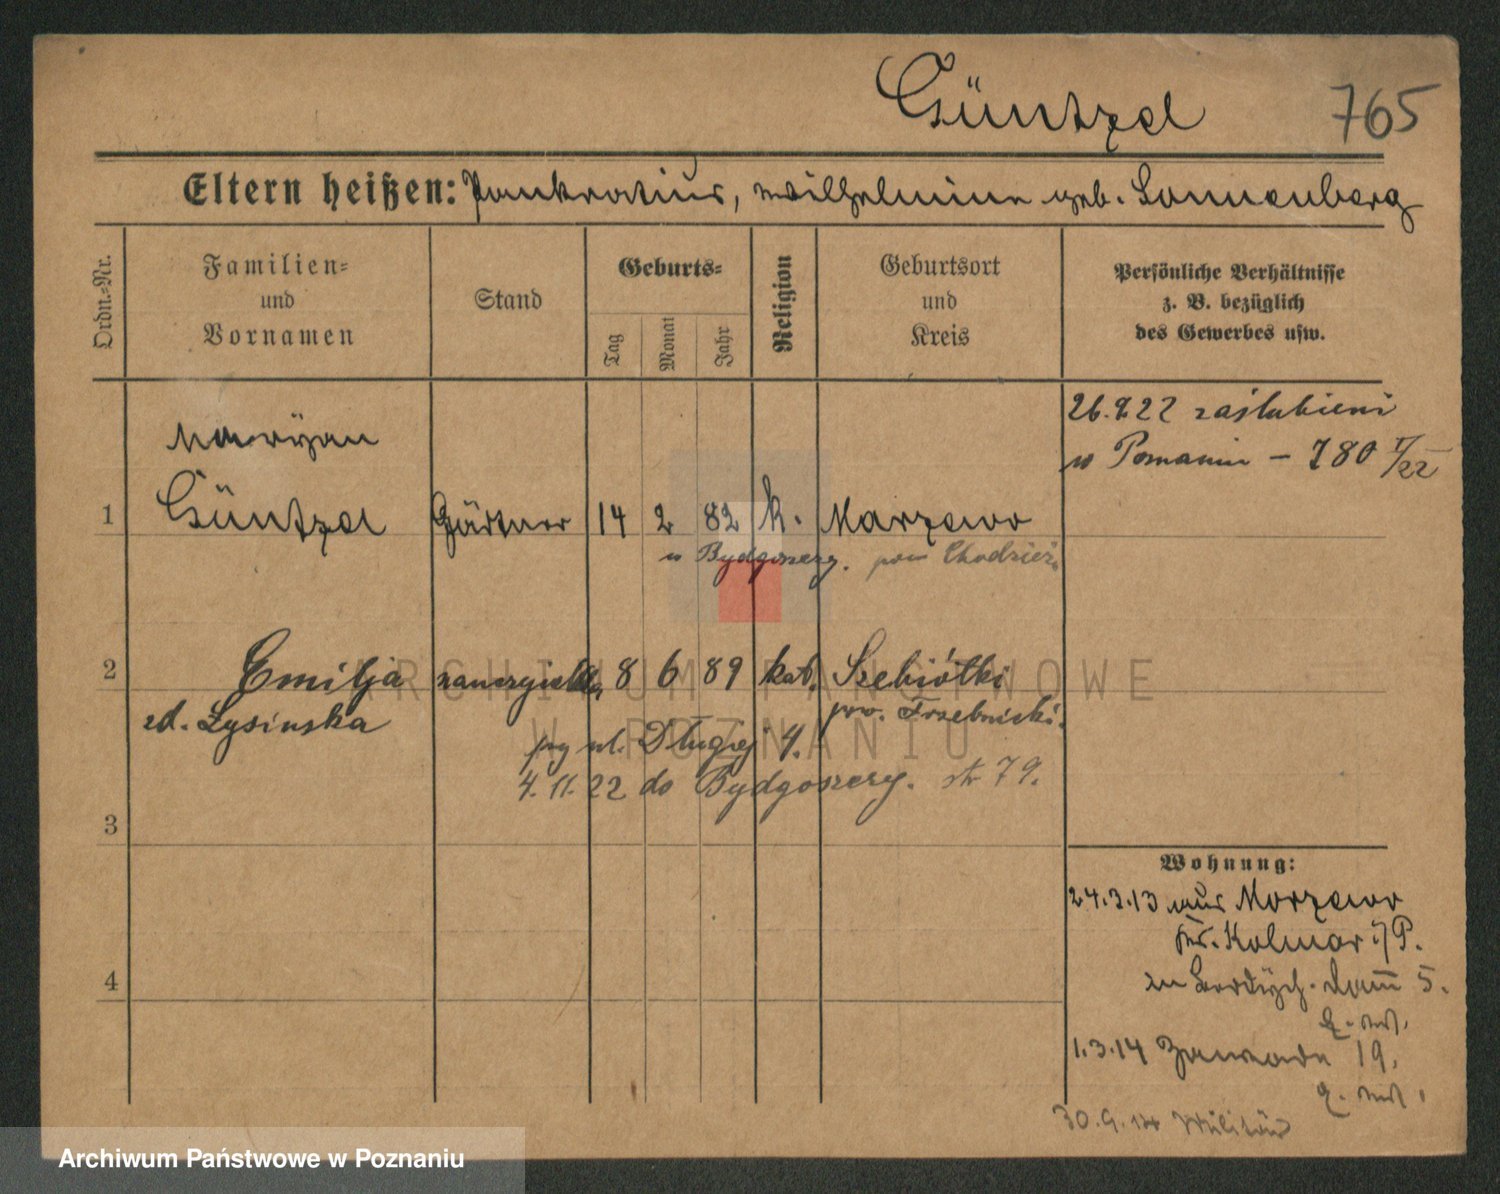 Güntzel 765
Eltern heißen: Pankratius, Wilhelmine geb. Sonnenberg
Ordn.=Nr.
Familien=
und
Vornamen
Stand
Geburts=
Tag
Monat
Jahr
Religion
Geburtsort
und
Kreis
Persönliche Verhältnisse
z. B. bezüglich
des Gewerbes usw.
26.9.22 zaślubieni
w Poznaniu – 780 V/22
Maryan
1 Güntzel Gärtner 14 2 82 k. Marzewo
w Bydgoszczy. pow Chodzież.
2 Emilja nauczycielka 8 6 89 kat. Szebiótki
zd. Łysinska pow. Trzebnicki.
przy ul. Długiej 4.
4.11.22 do Bydgoszczy. str 79.
3
4
Wohnung:
24.3.13 aus Morzewo
Kr. Kolmar i/P.
in Dom 5.
1.3.14 Zawade 19.
30.9.14 Militär
Archiwum Państwowe w Poznaniu
ARCHIWUM PAŃSTWOWE
W POZNANIU